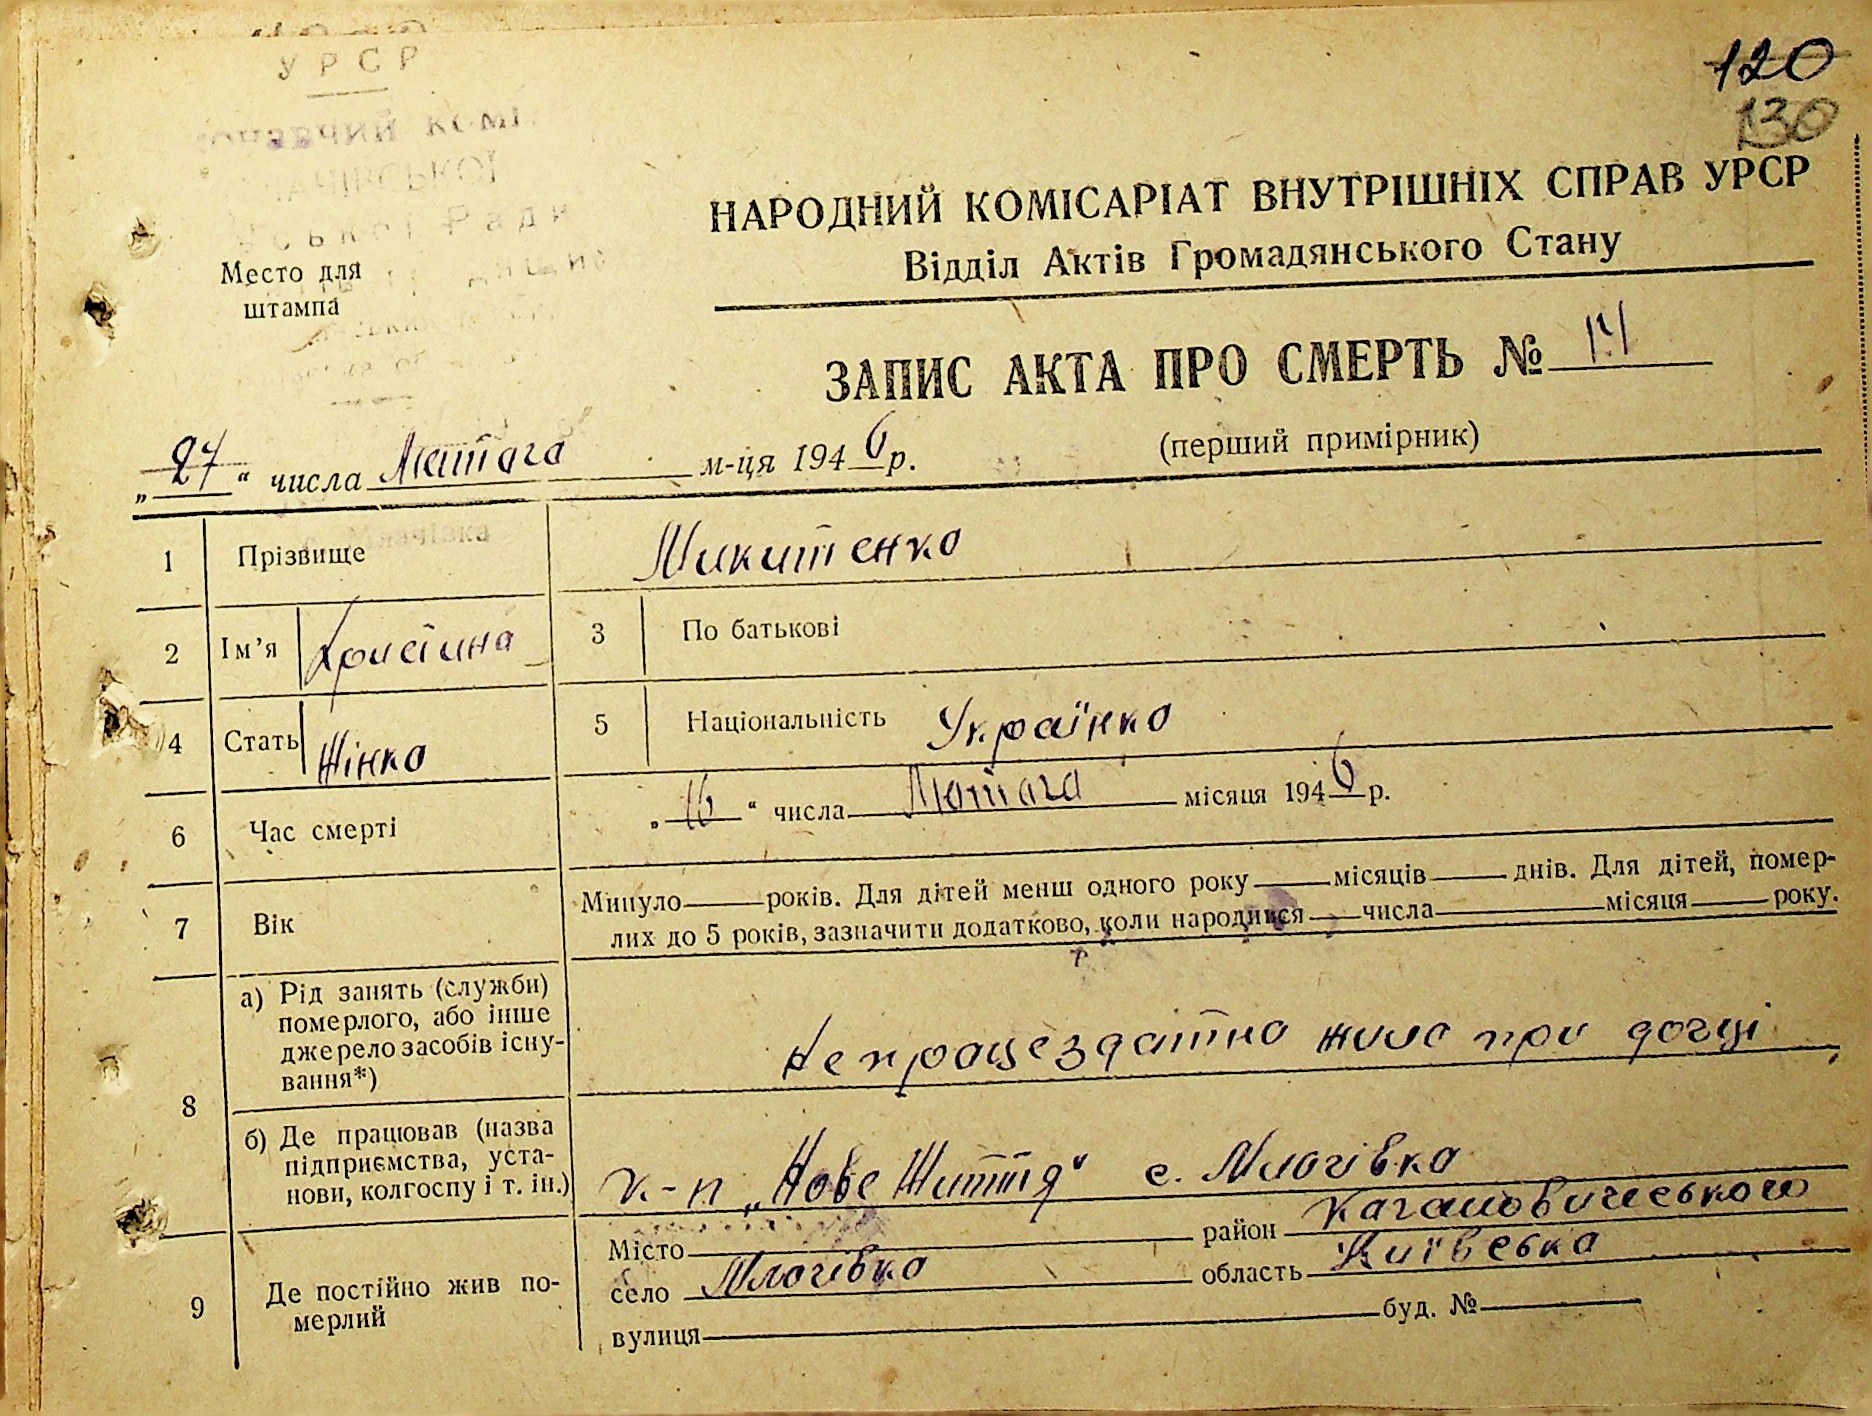 120
130
УРСР
НАРОДНИЙ КОМІСАРІАТ ВНУТРІШНІХ СПРАВ УРСР
Відділ Актів Громадянського Стану
Место для
штампа
ЗАПИС АКТА ПРО СМЕРТЬ №
„27“ числа Лютого м-ця 1946 р.
(перший примірник)
1 Прізвище Микитенко
2 Ім’я Христина 3 По батькові
4 Стать Жінка 5 Національність Українка
6 Час смерті „16“ числа Лютого місяця 1946 р.
7 Вік Минуло років. Для дітей менш одного року місяців днів. Для дітей, помер-
лих до 5 років, зазначити додатково, коли народився числа місяця року.
8 а) Рід занять (служби)
померлого, або інше
джерело засобів існу-
вання*)
Непрацездатна жила при дочці
б) Де працював (назва
підприємства, уста-
нови, колгоспу і т. ін.)
к-п „Нове Життя“ с.
9 Де постійно жив по-
мерлий
Місто район Кагановичеського
село область Київська
вулиця буд. №